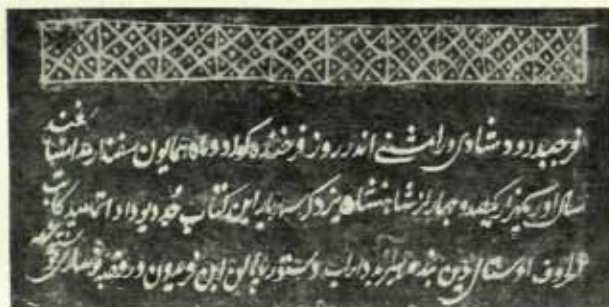 فرجپد درود شادی و رامشنی اندر روز فرخنده گواد و ماه همایون سفندارمد امشاسفند
سال اور یکهزار یکصد و چهار از شاهنشاه یزدگرد شهریار این کتاب جد دیو داد اتمامید کتابت
الحروف اوستا دین بنده هیربد داراب دستور پاهلن ابن فریدون در قصبه نوساری